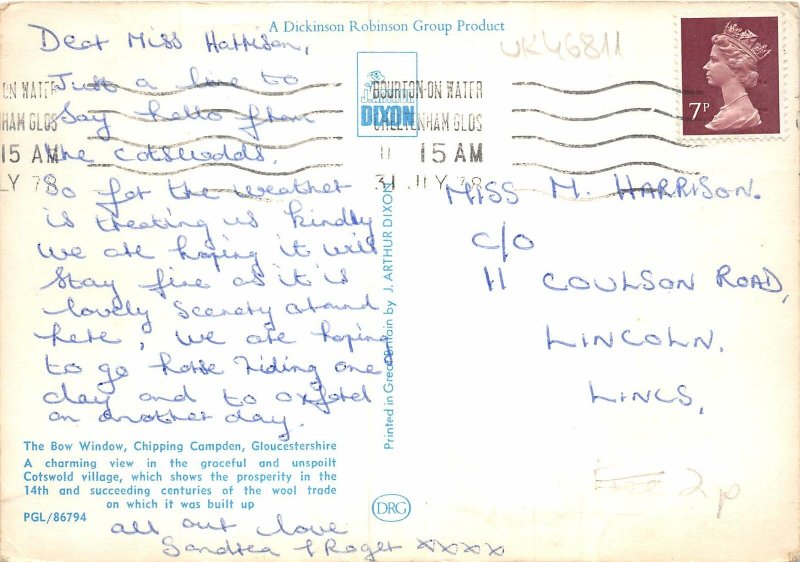 A Dickinson Robinson Group Product
UK46811
Dear Miss Harrison,
Just a line to
Say hello from
the cotswolds.
So far the weather
is treating us kindly
we are hoping it will
stay fine as it is
lovely scenery around
here, we are hoping
to go horse riding one
day and to oxford
on another day.
all our love
Sandra & Roger xxxx
ON WATER
HAM GLOS
15 AM
LY 78
J. ARTHUR
DIXON
BOURTON-ON WATER
CHELTENHAM GLOS
11 15 AM
31 JLY 78
7P
MISS M. HARRISON.
C/O
11 COULSON ROAD,
LINCOLN.
LINCS,
Printed in Great Britain by J. ARTHUR DIXON
The Bow Window, Chipping Campden, Gloucestershire
A charming view in the graceful and unspoilt
Cotswold village, which shows the prosperity in the
14th and succeeding centuries of the wool trade
on which it was built up
PGL/86794
DRG
2p